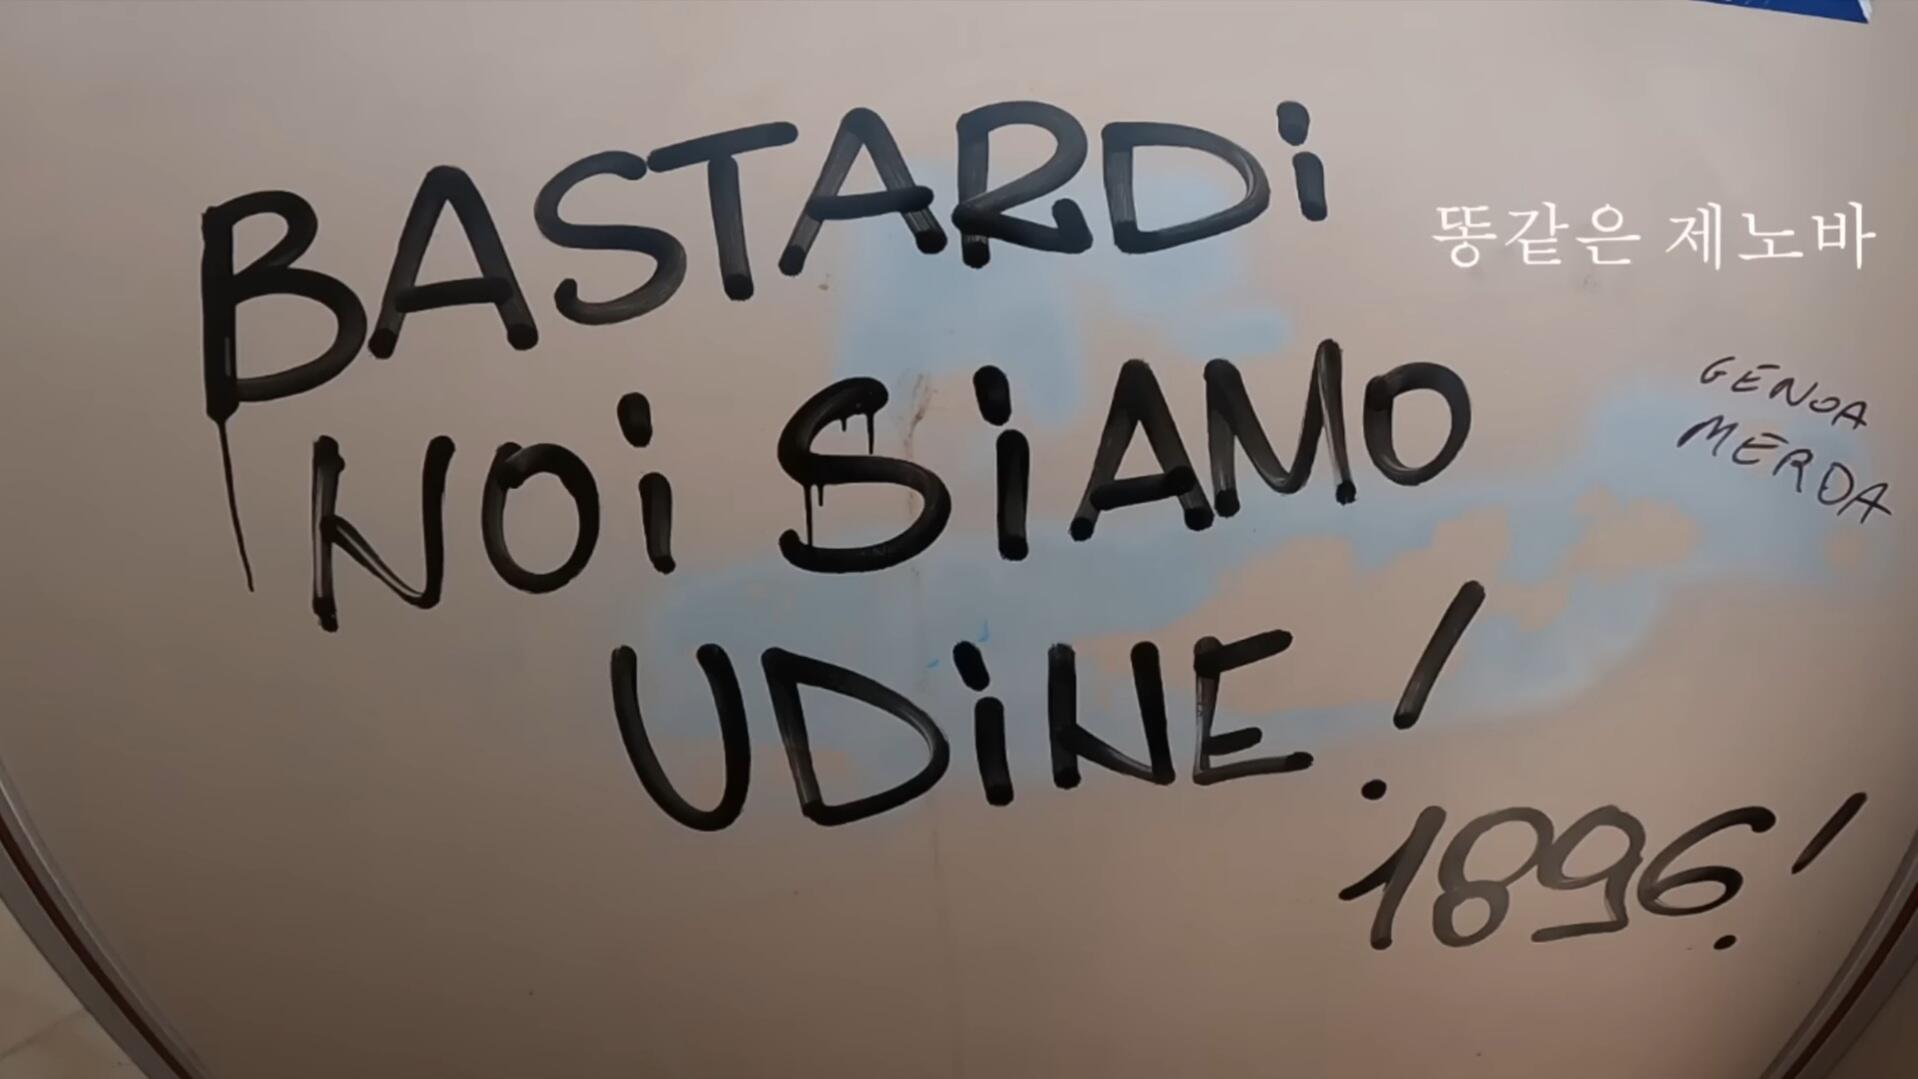 BASTARDi
똥같은 제노바
NOi SiAMO
GENOA
MERDA
UDiNE!
1896!